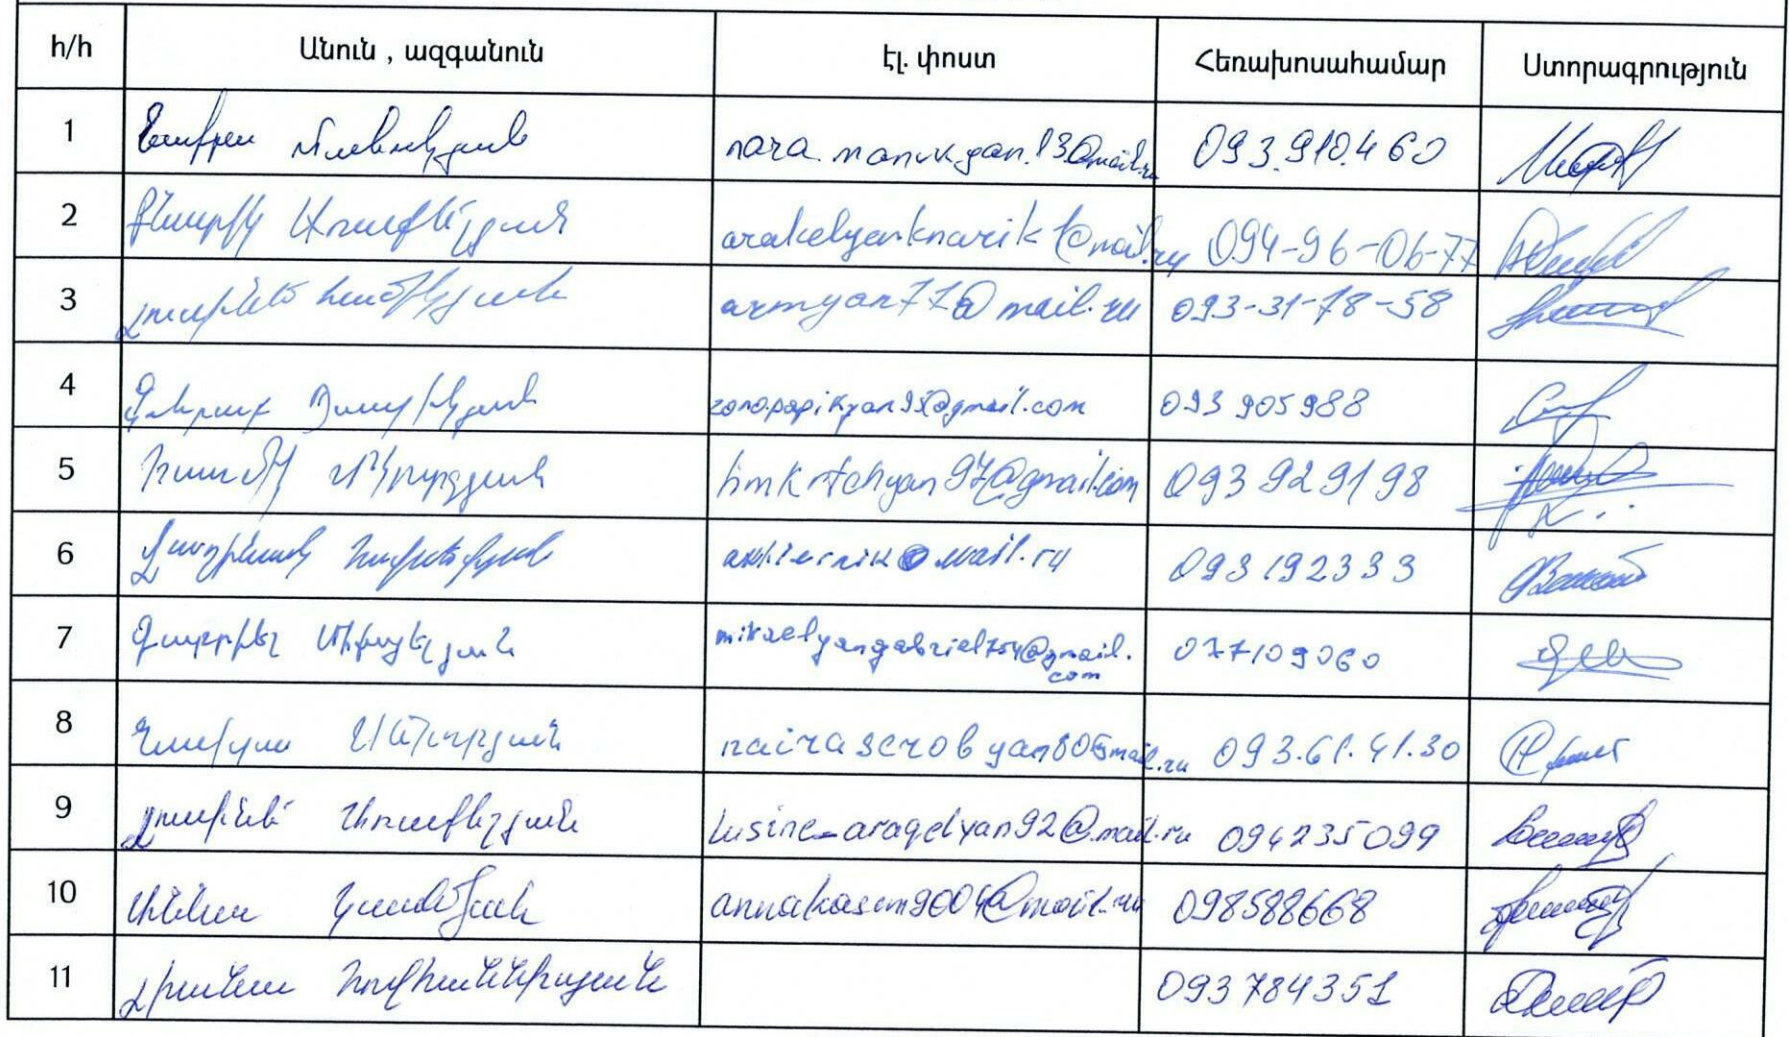 հ/հ Անուն , ազգանուն էլ. փոստ Հեռախոսահամար Ստորագրություն
1 Նաիրա Մանուկյան nara.manukyan.13@mail.ru 093.910.460
2 Քնարիկ Առաքելյան arakelyanknarik1@mail.ru 094-96-06-77
3 Լուսինե armyan77@mail.ru 093-31-78-58
4 Զոհրաբ Պապիկյան zoro.papikyan95@gmail.com 093 905 988
5 Մկրտչյան hmkrtchyan97@gmail.com 093 929198
6 093 192333
7 Գաբրիել Միքայելյան mikaelyangabriel754@gmail.com 077109060
8 Նաիրա Սերոբյան nairaserobyan80@mail.ru 093.61.41.30
9 Լուսինե Առաքելյան lusine_araqelyan92@mail.ru 094235099
10 Աննա 098588668
11 Լիանա Հովհաննիսյան 093784351